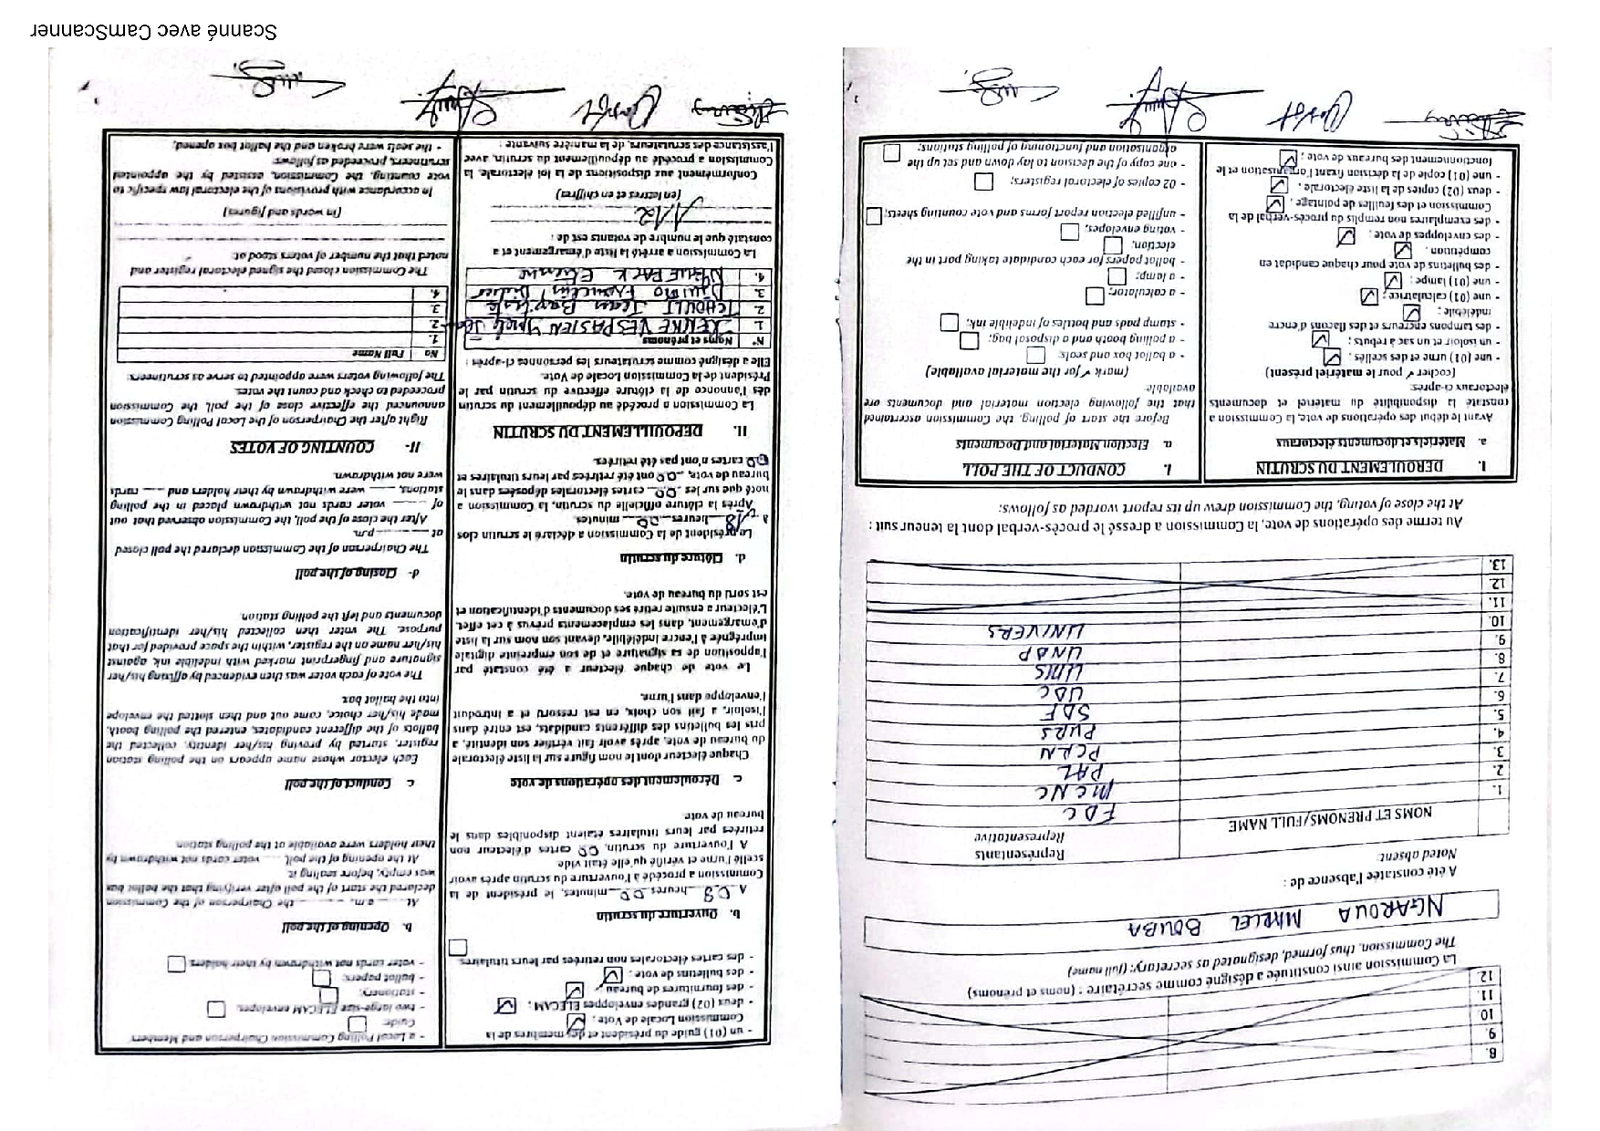 8.
9.
10
11
12
La Commission ainsi constituée a désigné comme secrétaire : (noms et prénoms)
The Commission, thus formed, designated as secretary: (full name)
NGAROUA MARCEL BOUBA
A été constatée l'absence de :
Noted absent:
NOMS ET PRENOMS/FULL NAME
Représentants
Representative
1. FDC
2. MCNC
3. PAL
4. PCRN
5. PURS
6. SDF
7. UDC
8. UMS
9. UNDP
10. UNIVERS
11.
12.
13.
Au terme des opérations de vote, la Commission a dressé le procès-verbal dont la teneur suit :
At the close of voting, the Commission drew up its report worded as follows:
I. DEROULEMENT DU SCRUTIN
a. Matériel et documents électoraux
Avant le début des opérations de vote, la Commission a
constaté la disponibilité du matériel et documents
électoraux ci-après:
(cocher ✓ pour le matériel présent)
- une (01) urne et des scellés ; ☑
- un isoloir et un sac à rebuts ; ☑
- des tampons encreur et des flacons d'encre
indélébile ; ☑
- une (01) calculatrice ; ☑
- une (01) lampe ; ☑
- des bulletins de vote pour chaque candidat en
compétition ; ☑
- des enveloppes de vote ; ☑
- des exemplaires non remplis du procès-verbal de la
Commission et des feuilles de pointage ; ☑
- deux (02) copies de la liste électorale ; ☑
- une (01) copie de la décision fixant l'organisation et le
fonctionnement des bureaux de vote ; ☑
I. CONDUCT OF THE POLL
a. Election Material and Documents
Before the start of polling, the Commission ascertained
that the following election material and documents are
available:
(mark ✓ for the material available)
- a ballot box and seals; ☐
- a polling booth and a disposal bag; ☐
- stamp pads and bottles of indelible ink; ☐
- a calculator; ☐
- a lamp; ☐
- ballot papers for each candidate taking part in the
election; ☐
- voting envelopes; ☐
- unfilled election report forms and vote counting sheets; ☐
- 02 copies of electoral registers; ☐
- one copy of the decision to lay down and set up the
organisation and functioning of polling stations; ☐
- un (01) guide du président et des membres de la
Commission Locale de Vote ; ☑
- deux (02) grandes enveloppes ELECAM ; ☑
- des fournitures de bureau ; ☑
- des bulletins de vote ; ☑
- des cartes électorales non retirées par leurs titulaires ☐
b. Ouverture du scrutin
A 08 heures 00 minutes, le président de la
Commission a procédé à l'ouverture du scrutin après avoir
scellé l'urne et vérifié qu'elle était vide
A l'ouverture du scrutin, 00 cartes d'électeur non
retirées par leurs titulaires étaient disponibles dans le
bureau de vote.
c. Déroulement des opérations de vote
Chaque électeur dont le nom figure sur la liste électorale
du bureau de vote, après avoir fait vérifier son identité, a
pris les bulletins des différents candidats, est entré dans
l'isoloir, a fait son choix, en est ressorti et a introduit
l'enveloppe dans l'urne.
Le vote de chaque électeur a été constaté par
l'apposition de sa signature et de son empreinte digitale
imprégnée à l'encre indélébile, devant son nom sur la liste
d'émargement, dans les emplacements prévus à cet effet.
L'électeur a ensuite retiré ses documents d'identification et
est sorti du bureau de vote.
d. Clôture du scrutin
Le président de la Commission a déclaré le scrutin clos
à 18 heures 00 minutes.
Après la clôture officielle du scrutin, la Commission a
noté que sur les 00 cartes électorales déposées dans le
bureau de vote, 00 ont été retirées par leurs titulaires et
00 cartes n'ont pas été retirées.
II. DEPOUILLEMENT DU SCRUTIN
La Commission a procédé au dépouillement du scrutin
dès l'annonce de la clôture effective du scrutin par le
Président de la Commission Locale de Vote.
Elle a désigné comme scrutateurs les personnes ci-après :
N° Noms et prénoms
1. KENNE VESPASIEN
2. TCHOULT Jean Baptiste
3. DJUIMO Francklin Didier
4. Etienne
La Commission a arrêté la liste d'émargement et a
constaté que le nombre de votants est de :
112
(en lettres et en chiffres)
Conformément aux dispositions de la loi électorale, la
Commission a procédé au dépouillement du scrutin, avec
l'assistance des scrutateurs, de la manière suivante :
- a Local Polling Commission Chairperson and Members
Guide ☐
- two large-size ELECAM envelopes. ☐
- stationery; ☐
- ballot papers; ☐
- voter cards not withdrawn by their holders ☐
b. Opening of the poll
At a.m. the Chairperson of the Commission
declared the start of the poll after verifying that the ballot box
was empty, before sealing it.
At the opening of the poll, voter cards not withdrawn by
their holders were available at the polling station
c. Conduct of the poll
Each elector whose name appears on the polling station
register, started by proving his/her identity, collected the
ballots of the different candidates, entered the polling booth,
made his/her choice, came out and then slotted the envelope
into the ballot box
The vote of each voter was then evidenced by affixing his/her
signature and fingerprint marked with indelible ink against
his/her name on the register, within the space provided for that
purpose. The voter then collected his/her identification
documents and left the polling station.
d- Closing of the poll
The Chairperson of the Commission declared the poll closed
at p.m.
After the close of the poll, the Commission observed that out
of voter cards not withdrawn placed in the polling
stations, were withdrawn by their holders and cards
were not withdrawn.
II- COUNTING OF VOTES
Right after the Chairperson of the Local Polling Commission
announced the effective close of the poll, the Commission
proceeded to check and count the votes.
The following voters were appointed to serve as scrutineers:
No Full Name
1.
2.
3.
4.
The Commission closed the signed electoral register and
noted that the number of voters stood at:
(in words and figures)
In accordance with provisions of the electoral law specific to
vote counting, the Commission, assisted by the appointed
scrutineers, proceeded as follows:
- the seals were broken and the ballot box opened;
Scanné avec CamScanner